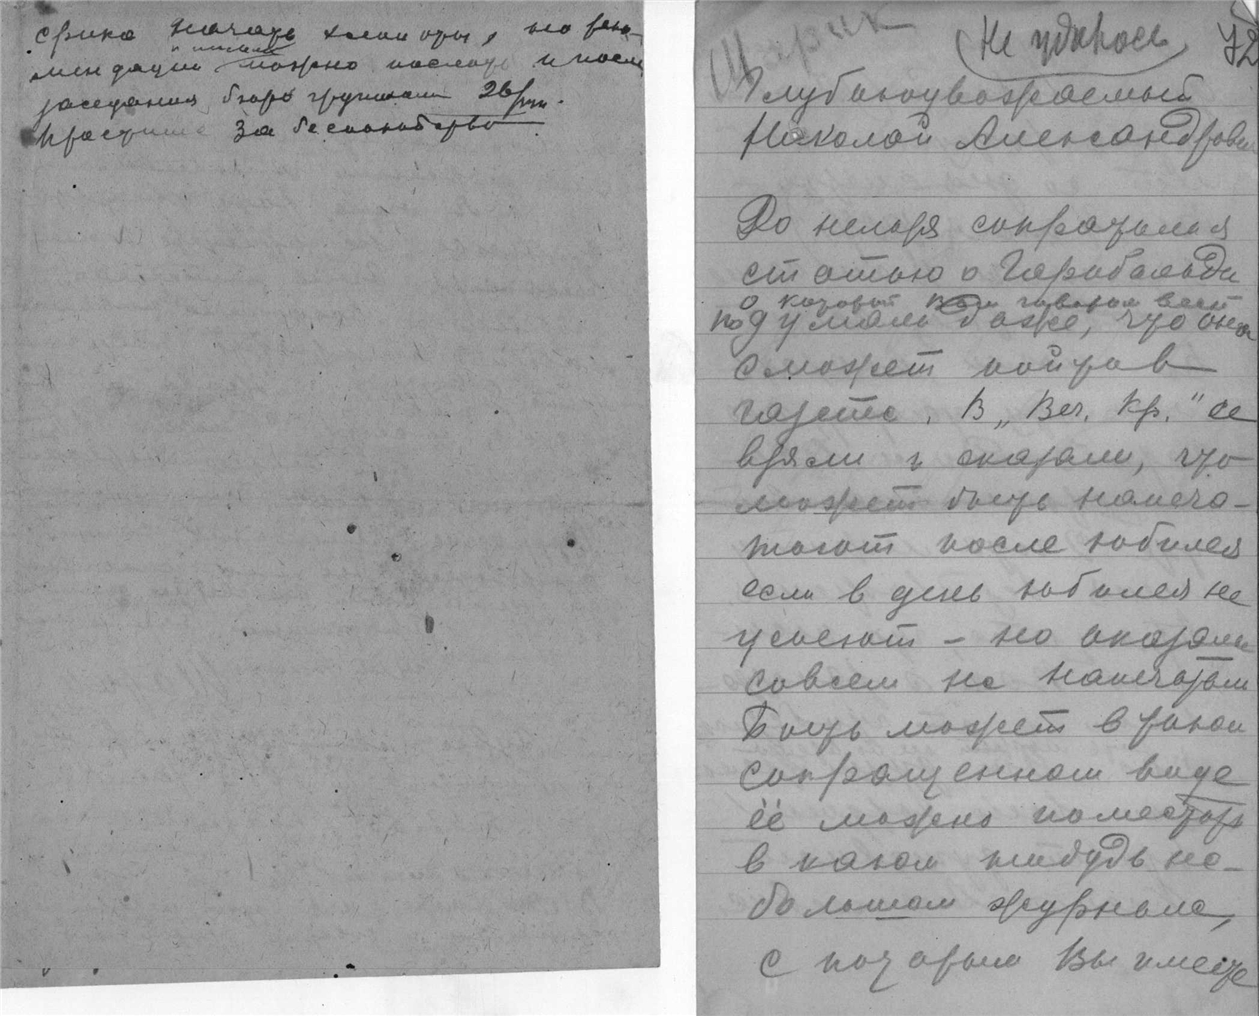 срика начать хлопоты, но реко-
и письмо
мендации можно послать и после
заседания бюро группком 26/
Простите за беспокойство
Щарик
Не удалось
72
Глубокоуважаемый
Николай Александрович
До нельзя сократила
статью о Гарибальди
о которой Вам говорил
подумаль даже, что она
сможет пойти в
газете. В „Веч. Кр." ее
взяли и сказали, что
может быть напеча-
тают после юбилея
если в день юбилея не
успеют – но оказали
совсем не напечатали
Быть может в таком
сокращенном виде
её можно поместить
в каком нибудь не-
большом журнале,
с которым Вы имеете